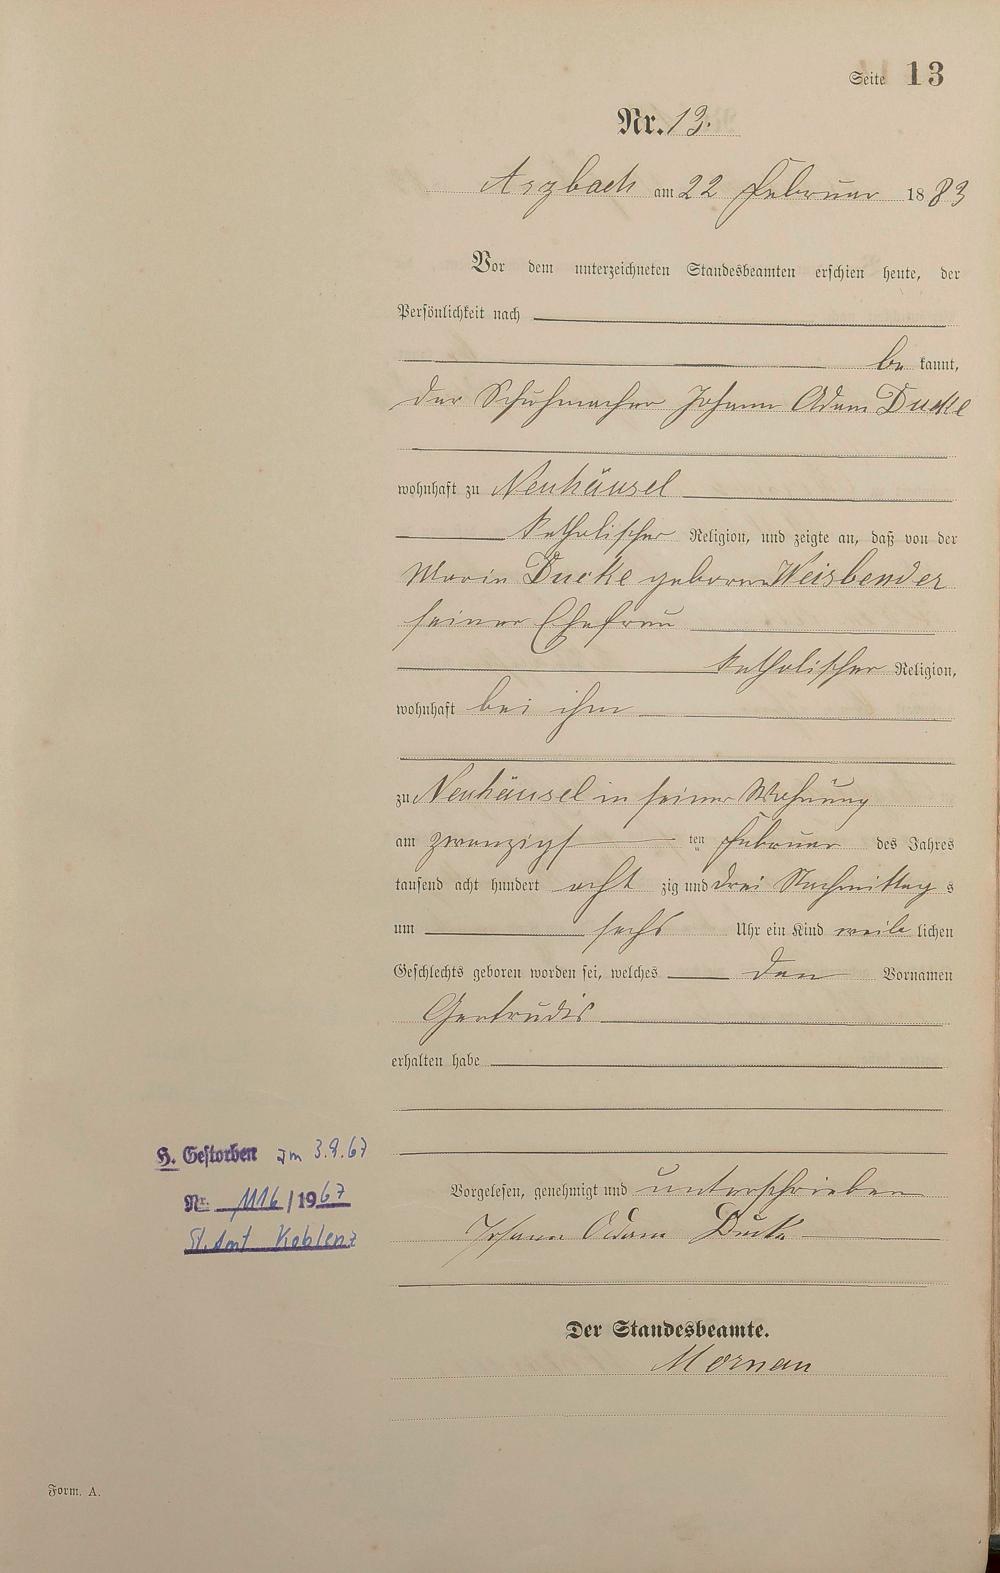 Seite 13
Nr. 13.
Arzbach am 22 Februar 1883
Vor dem unterzeichneten Standesbeamten erschien heute, der
Persönlichkeit nach
be kannt,
der Schuhmacher Johann Adam Ducke
wohnhaft zu Neuhäusel
katholischer Religion, und zeigte an, daß von der
Maria Ducke geborene Weisbender
seiner Ehefrau
katholischer Religion,
wohnhaft bei ihm
zu Neuhäusel in seiner Wohnung
am zwanzigst ten Februar des Jahres
tausend acht hundert acht zig und drei Nachmittag s
um sechs Uhr ein Kind weib lichen
Geschlechts geboren worden sei, welches den Vornamen
Gertrudis
erhalten habe
H. Gestorben am 3.9.67
Nr. 1116/1967
St. Amt Koblenz
Vorgelesen, genehmigt und unterschrieben
Johann Adam Ducke
Der Standesbeamte.
Form. A.